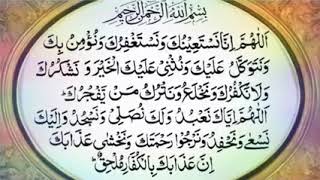 بِسْمِ اللهِ الرَّحْمٰنِ الرَّحِيْمِ
اَللّٰهُمَّ اِنَّا نَسْتَعِيْنُكَ وَنَسْتَغْفِرُكَ وَنُؤْمِنُ بِكَ
وَنَتَوَكَّلُ عَلَيْكَ وَنُثْنِيْ عَلَيْكَ الْخَيْرَ وَنَشْكُرُكَ
وَلَا نَكْفُرُكَ وَنَخْلَعُ وَنَتْرُكُ مَنْ يَّفْجُرُكَ
اَللّٰهُمَّ اِيَّاكَ نَعْبُدُ وَلَكَ نُصَلِّيْ وَنَسْجُدُ وَاِلَيْكَ
نَسْعٰى وَنَحْفِدُ وَنَرْجُوْا رَحْمَتَكَ وَنَخْشٰى عَذَابَكَ
اِنَّ عَذَابَكَ بِالْكُفَّارِ مُلْحِقٌ